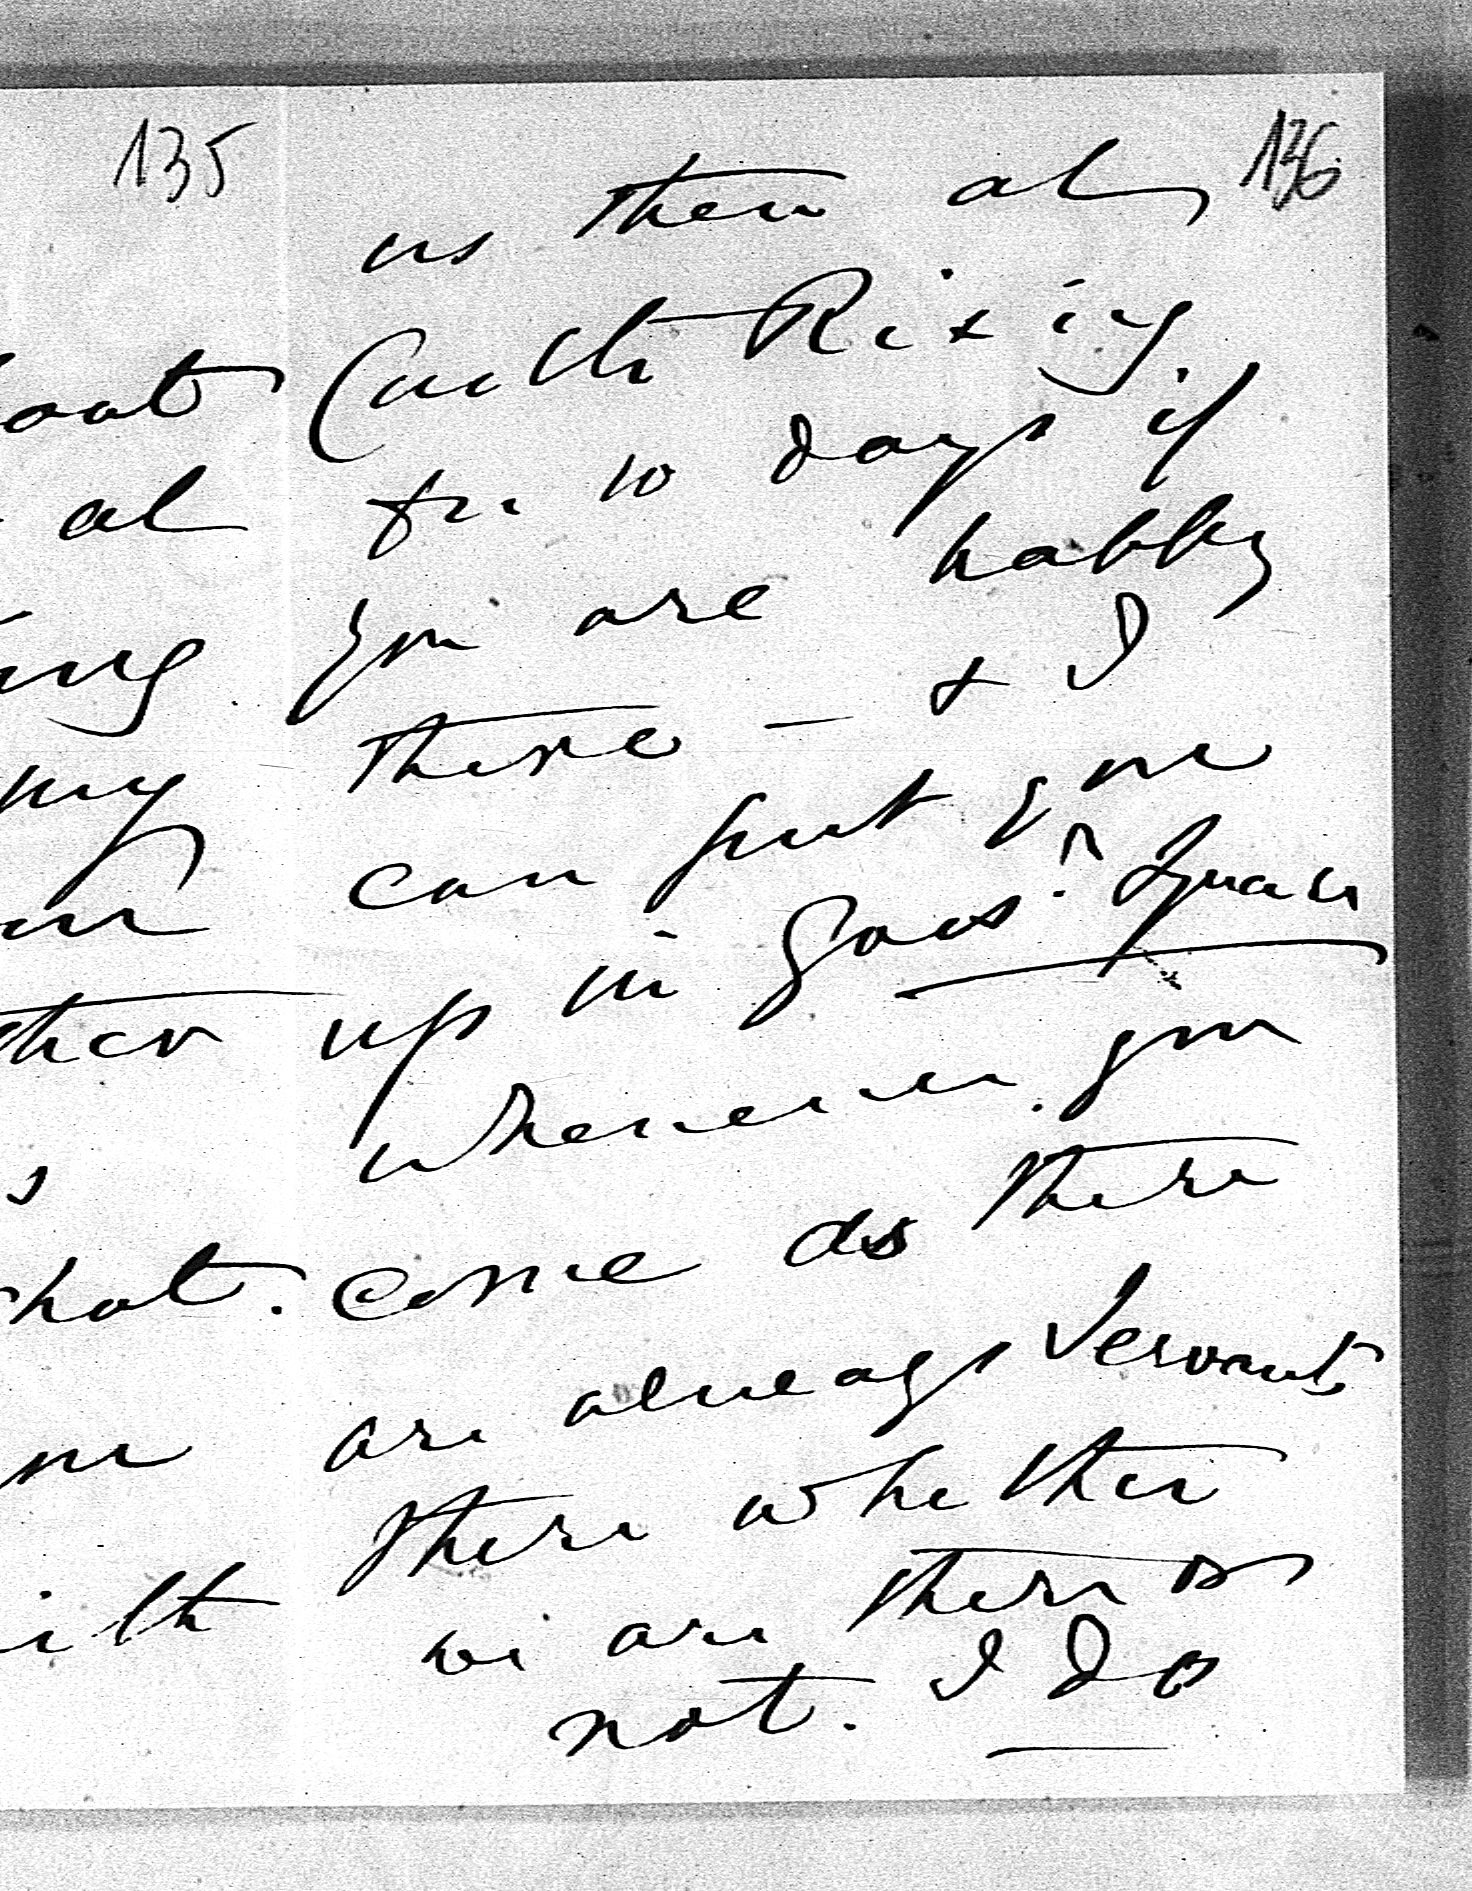 135
oat
at
ing
my
ther
s
hat.
ith
136
us then at
Castle Rising.
for 10 days if
you are happy
there — & I
can put you
up in Gros: Square
whenever you
come as there
are always Servants
there whether
we are there or
not. I do